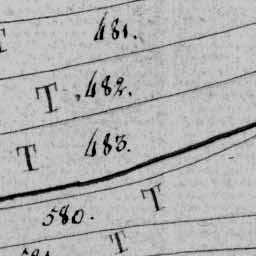 T 481.
T 482.
T 483.
580. T
T